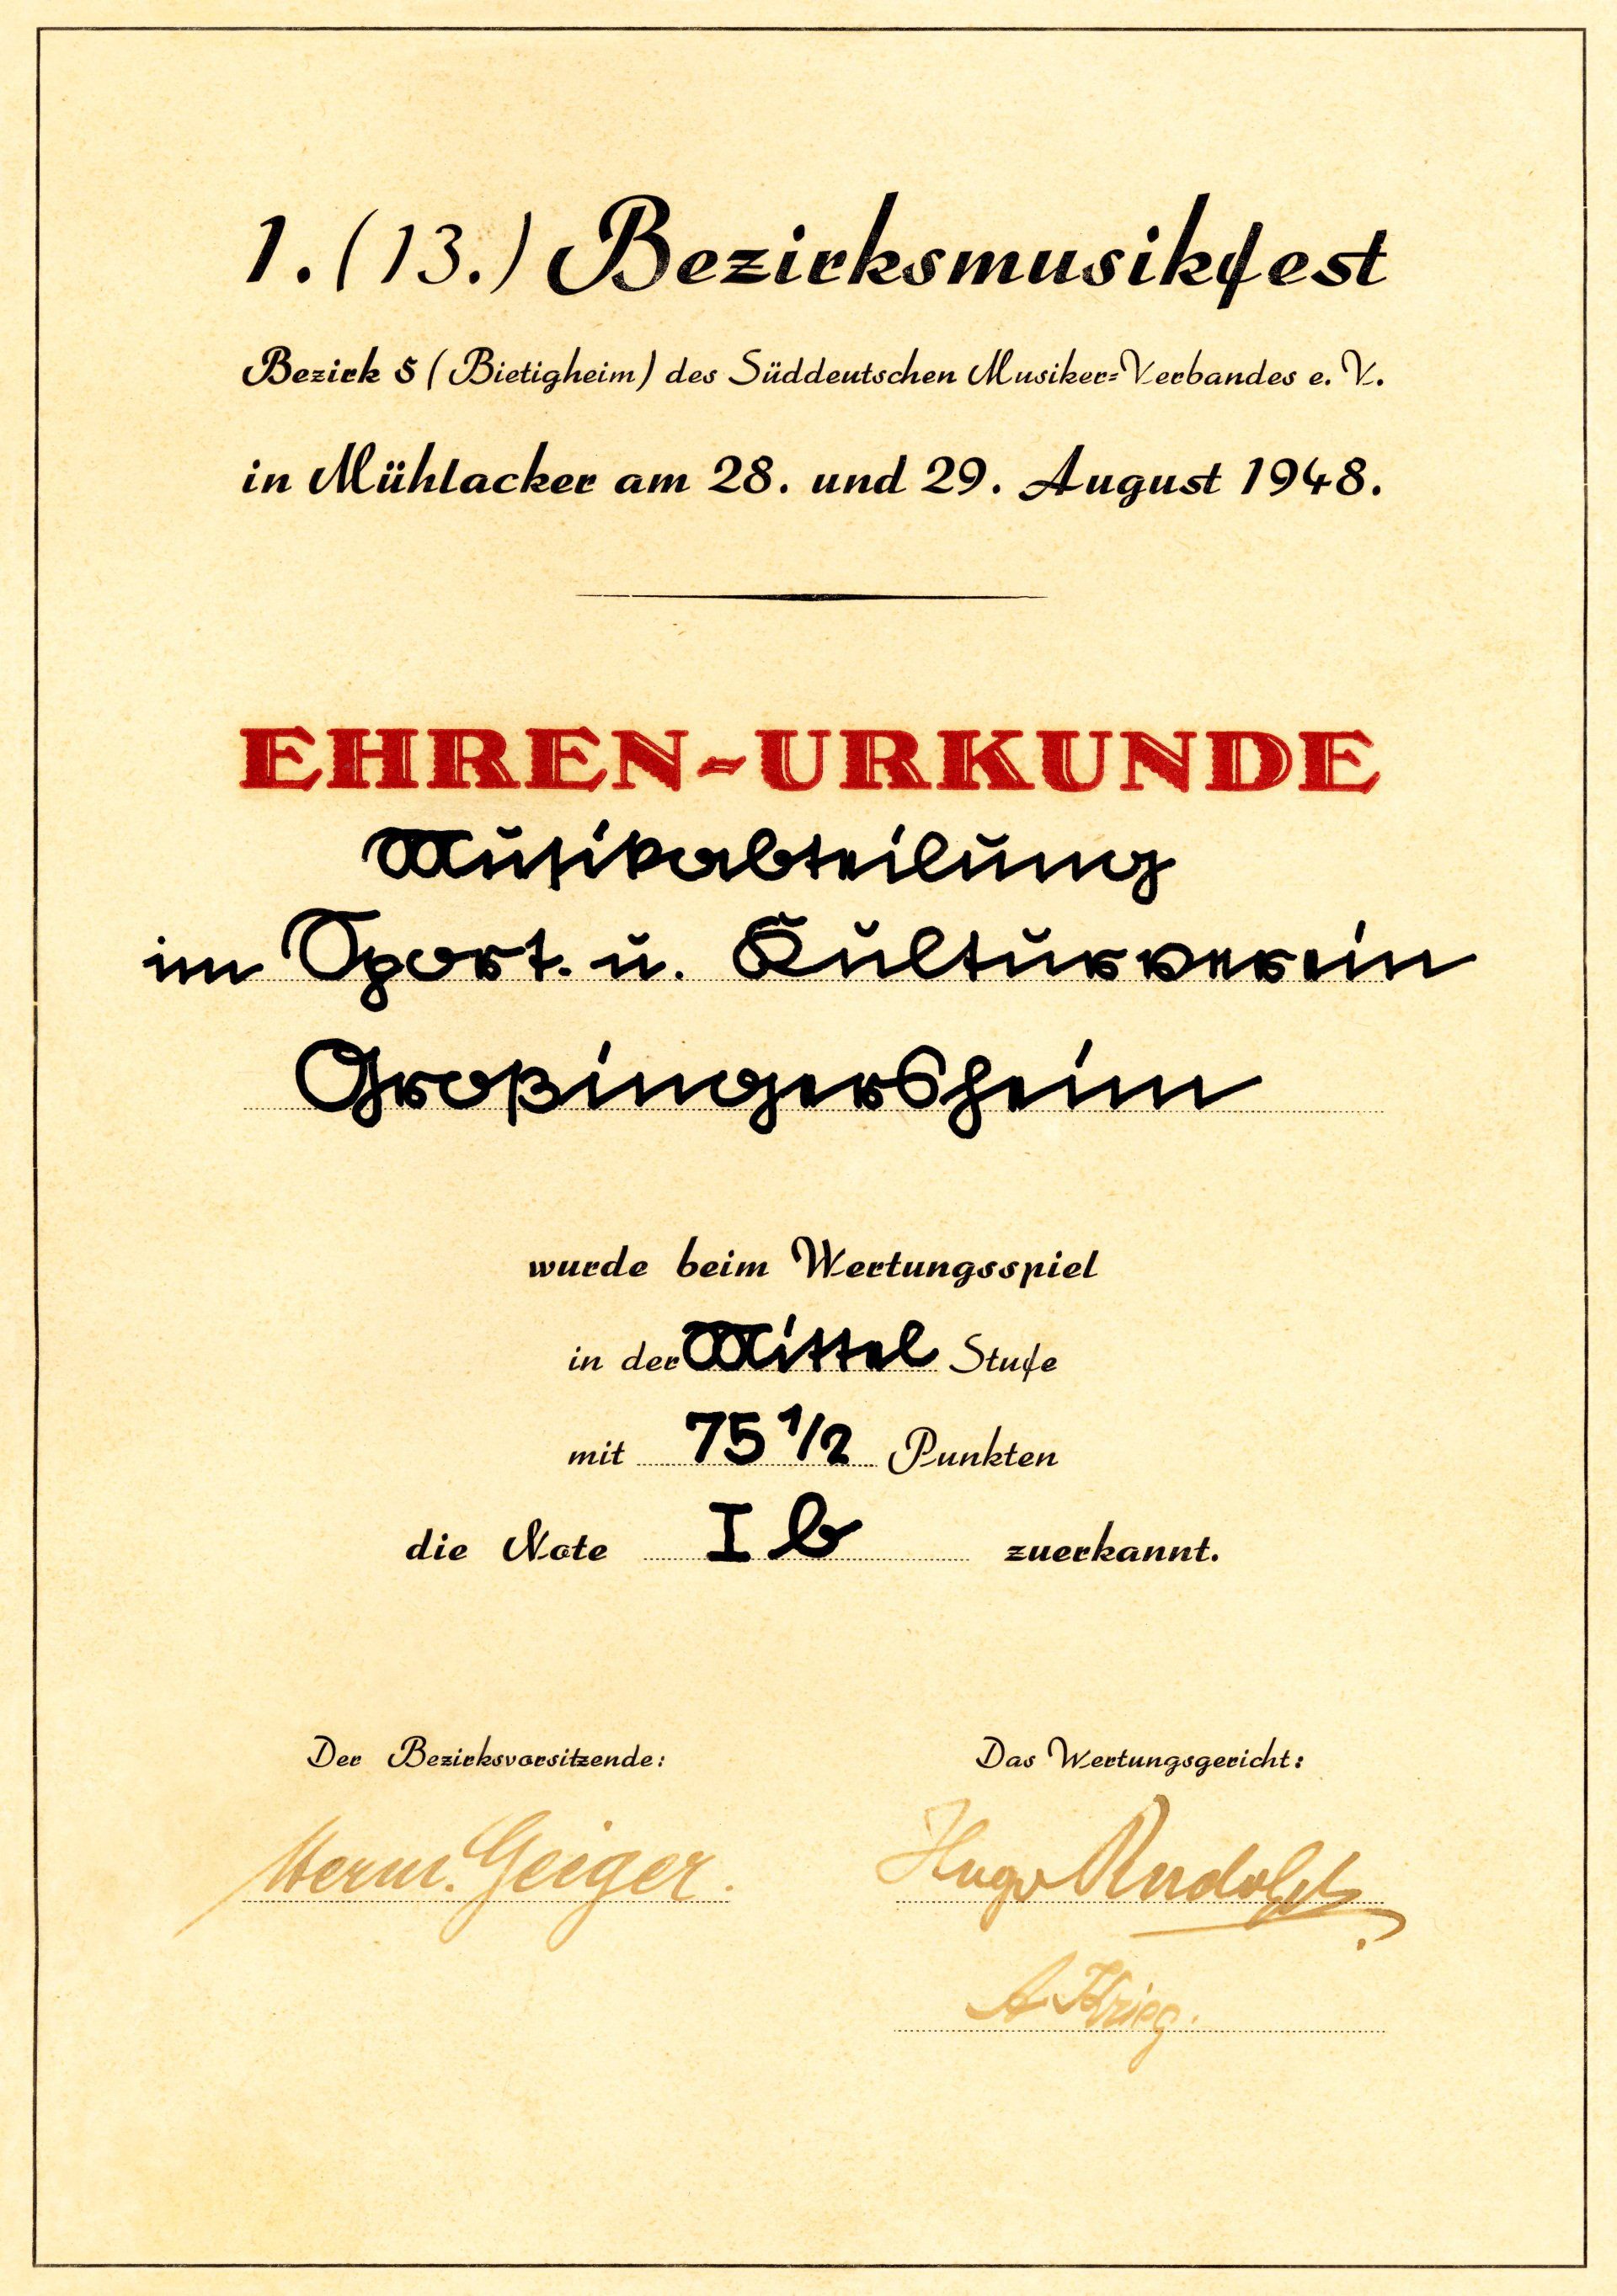 1. (13.) Bezirksmusikfest
Bezirk 5 (Bietigheim) des Süddeutschen Musiker=Verbandes e. V.
in Mühlacker am 28. und 29. August 1948.
EHREN-URKUNDE
Musikabteilung
im Sport. u. Kulturverein
Großingersheim
wurde beim Wertungsspiel
in der Mittel Stufe
mit 75 1/2 Punkten
die Note I b zuerkannt.
Der Bezirksvorsitzende: Das Wertungsgericht:
Herm. Geiger. Hugo Rudolph
A. Krieg.